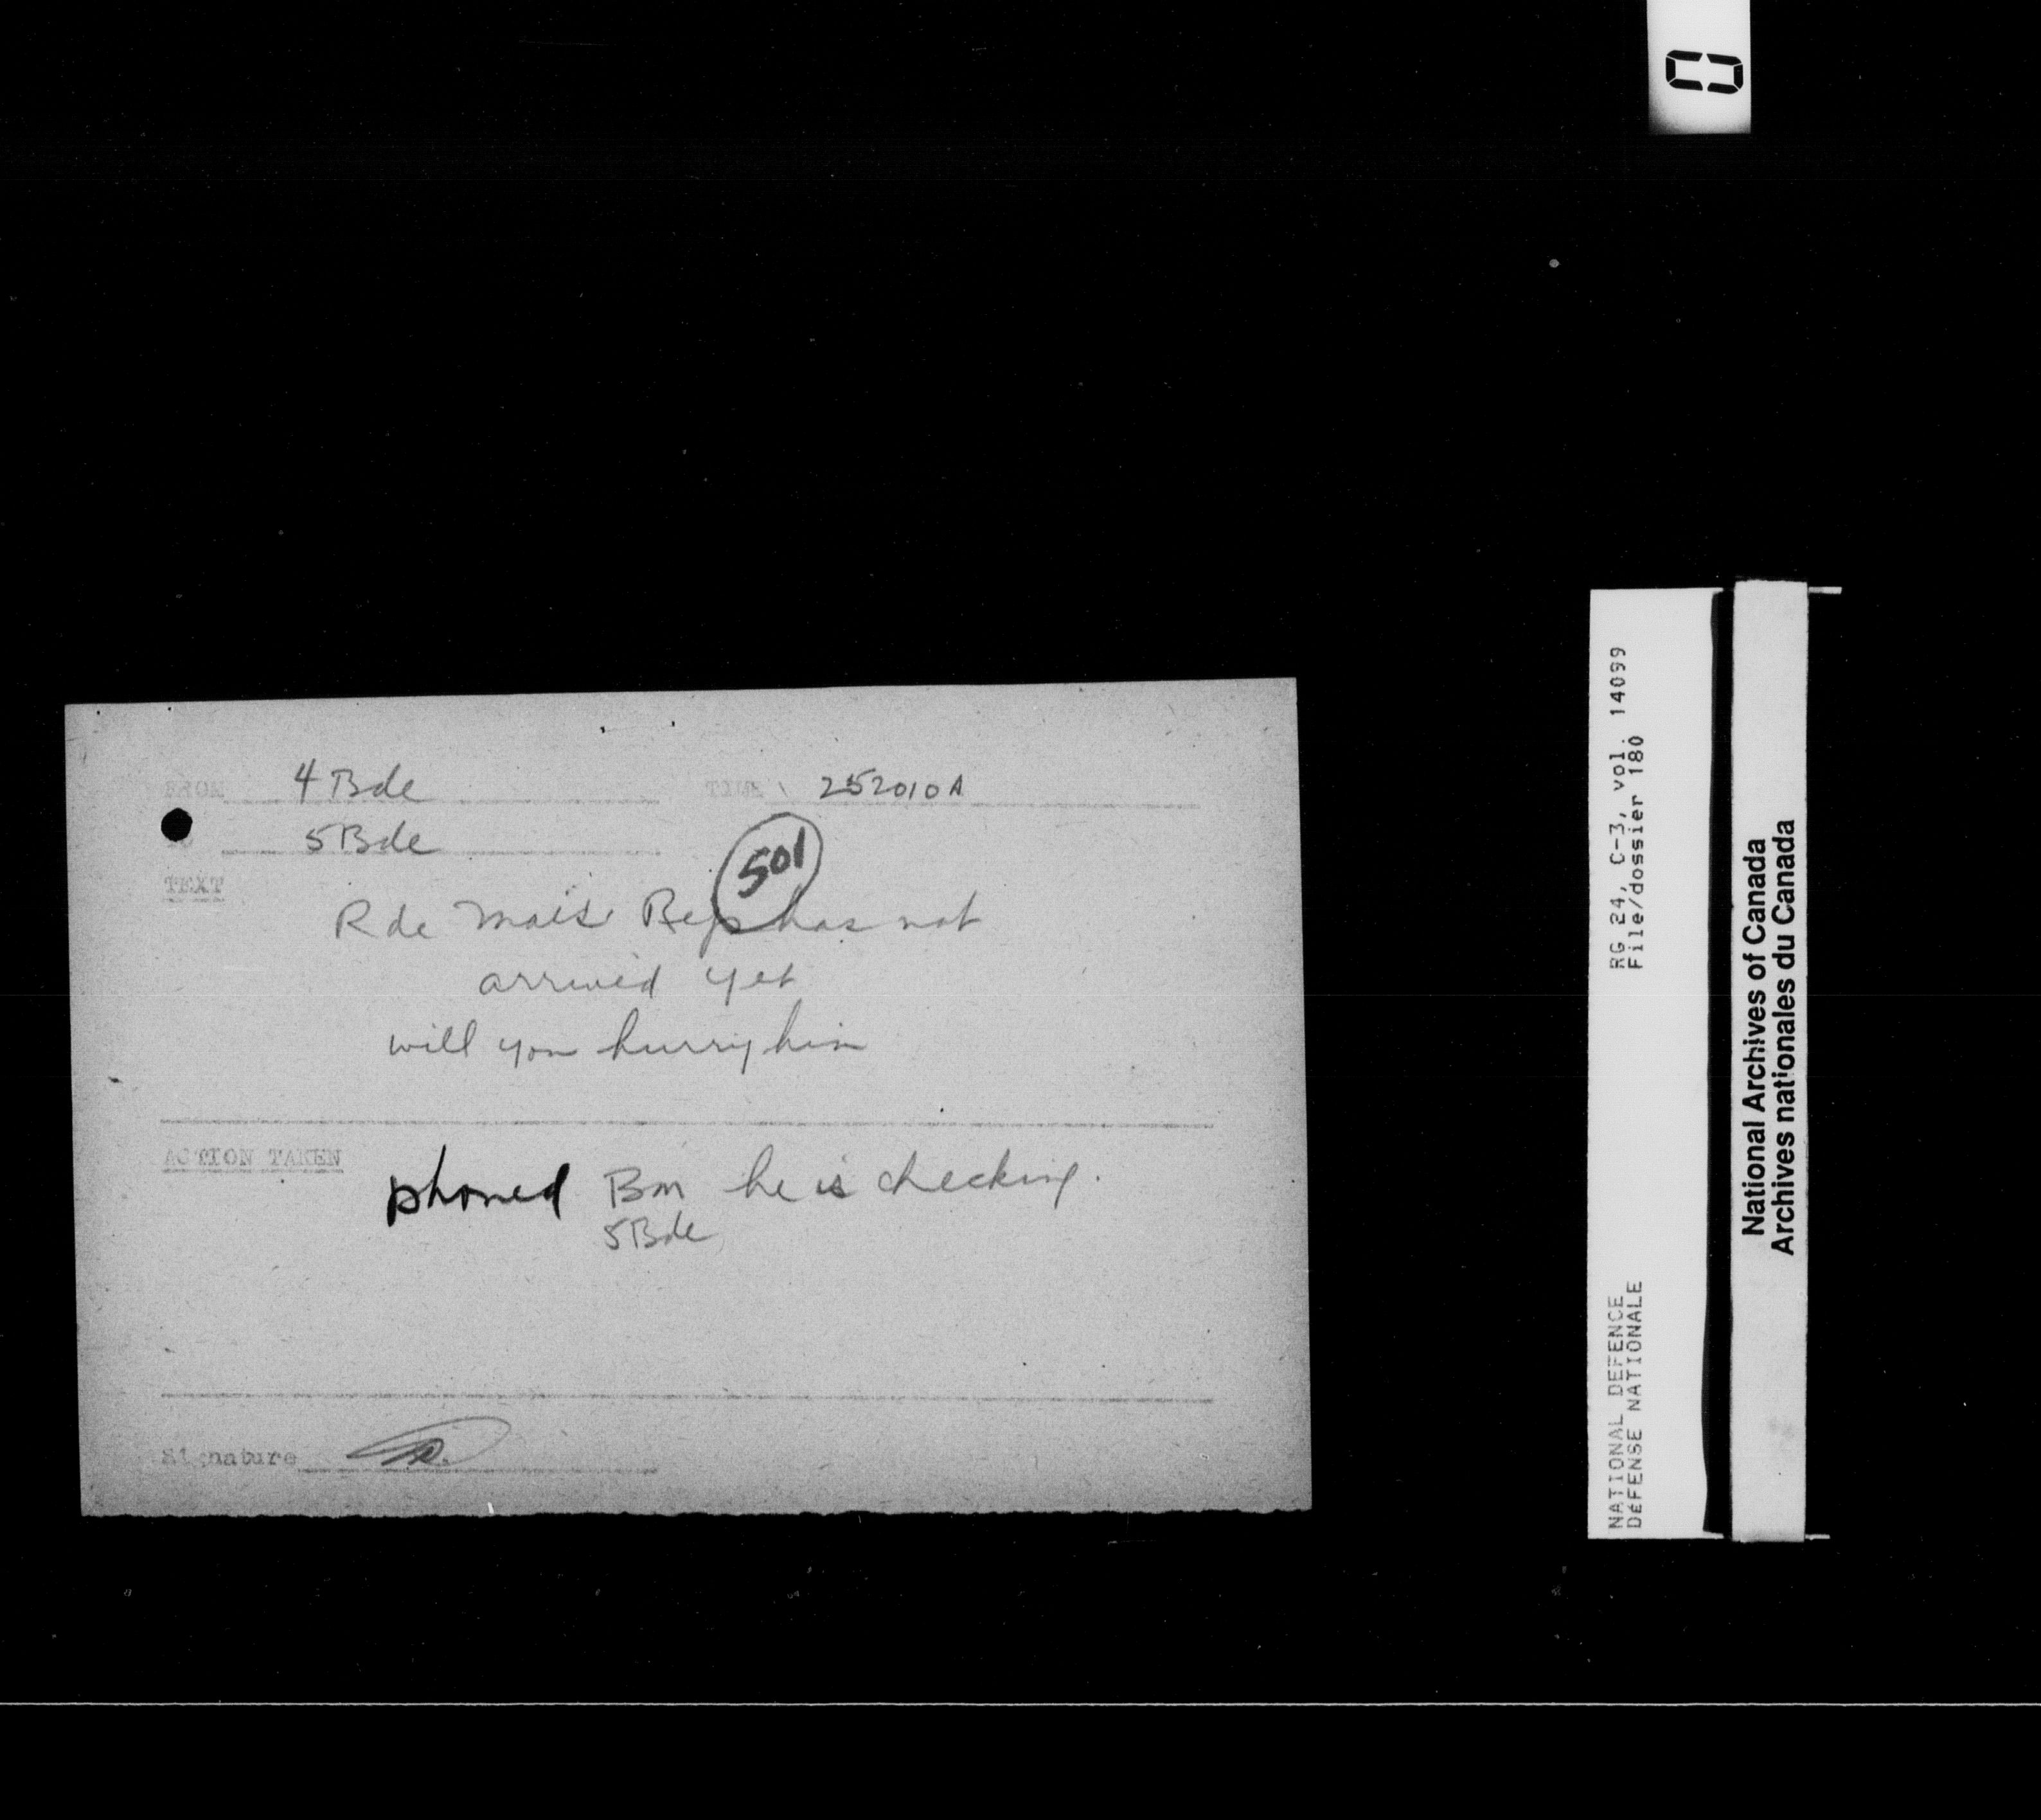 FROM 4 Bde TIME 252010A
TO 5 Bde
501
TEXT
R de Mais Rep has not
arrived yet
will you hurry him
ACTION TAKEN
phoned Bm he is checking.
5 Bde
Signature
RG 24, C-3, vol. 14099
File/dossier 180
NATIONAL DEFENCE
DéFENSE NATIONALE
National Archives of Canada
Archives nationales du Canada